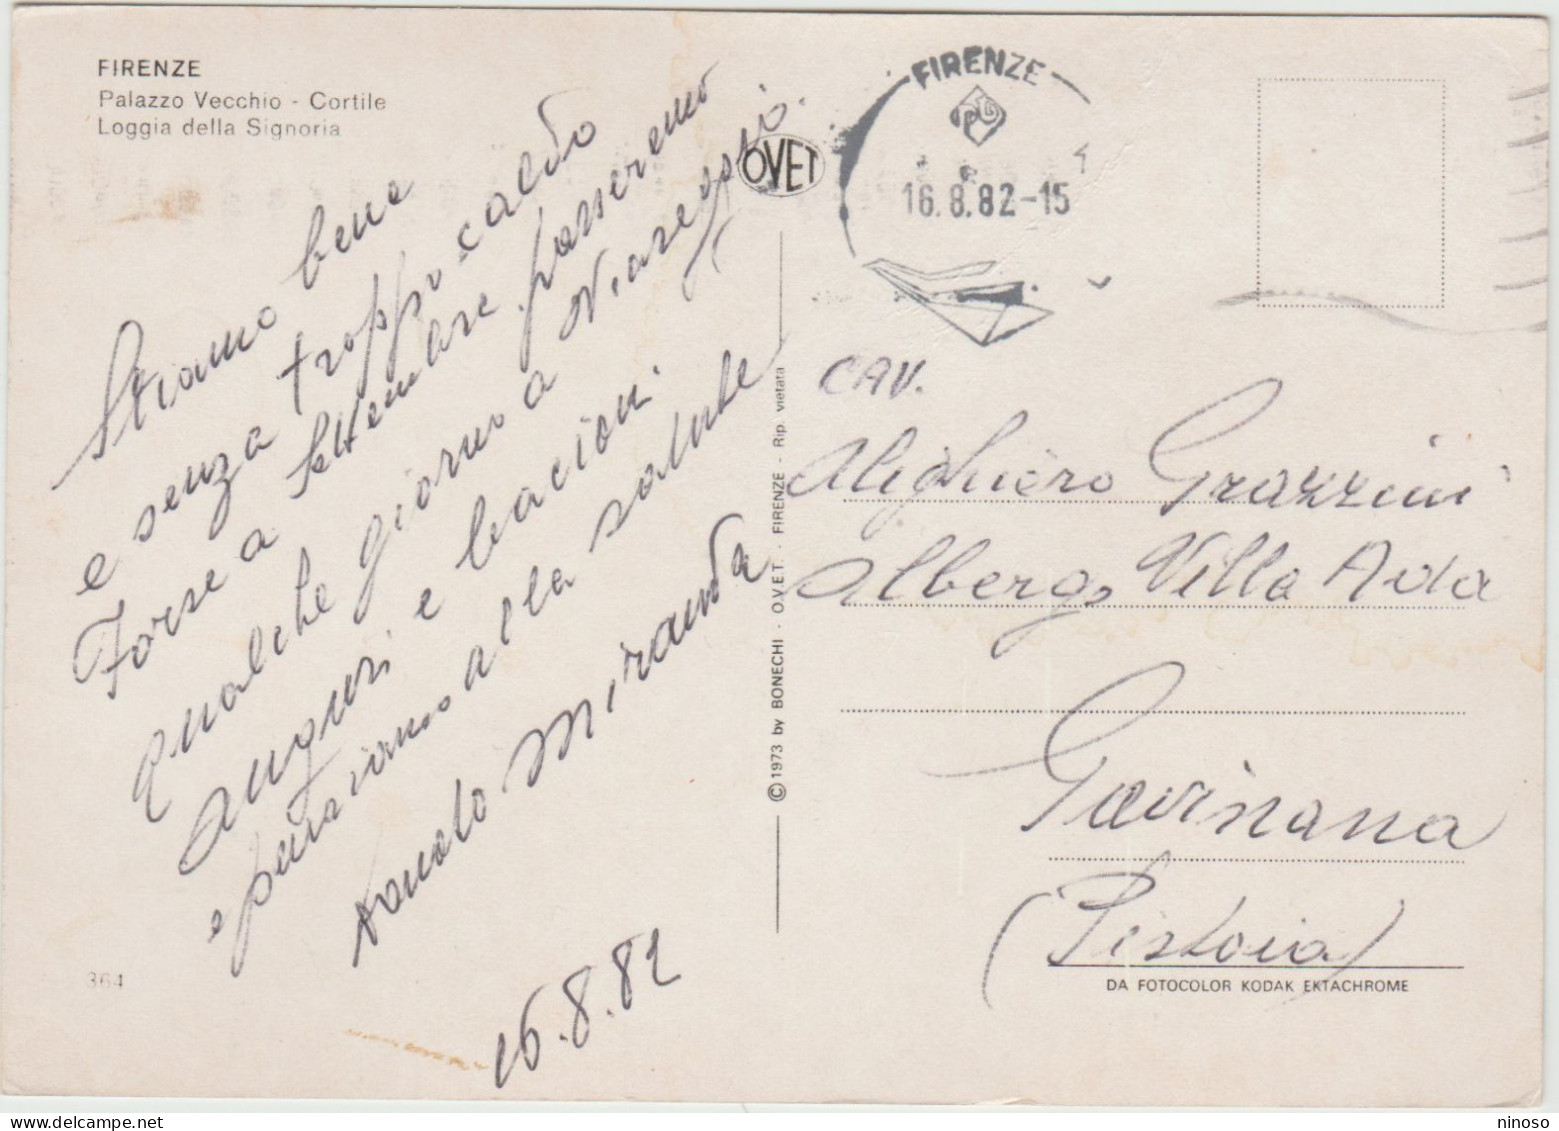 FIRENZE
Palazzo Vecchio - Cortile
Loggia della Signoria
Stiamo bene
e senza troppo caldo
Forse a settembre passeremo
qualche giorno a Viareggio.
auguri e bacioni.
e pensiamo alla salute
Donato Miranda
16.8.82
364
OVET
© 1973 by BONECHI - O.V.E.T. - FIRENZE - Rip. vietata
FIRENZE
16.8.82-15
CAV.
Alighiero Grazzini
Albergo Villa Ada
Gavinana
(Pistoia)
DA FOTOCOLOR KODAK EKTACHROME
ninoso